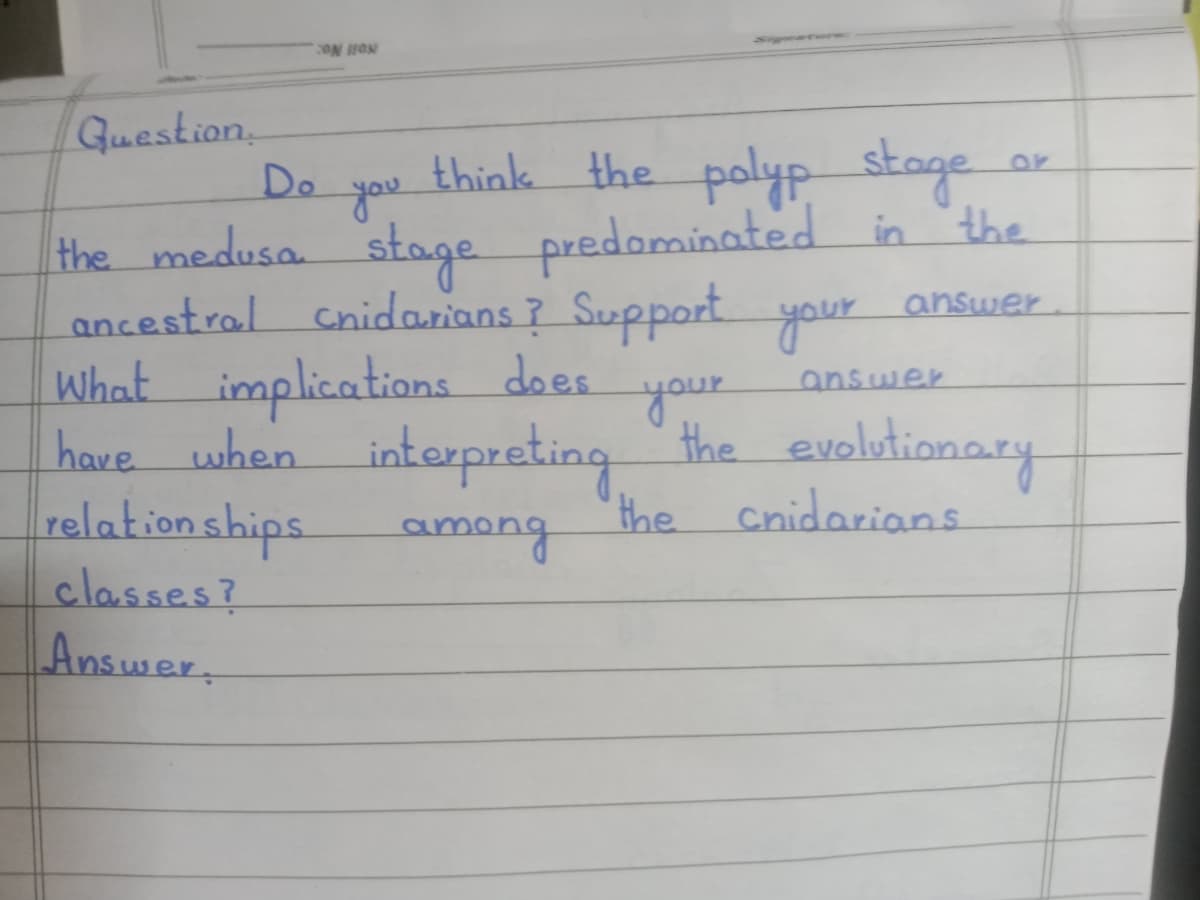 Roll No:
Signature:
Question.
Do you think the polyp stage or
the medusa stage predominated in the
ancestral cnidarians? Support your answer.
What implications does your answer
have when interpreting the evolutionary
relationships among the cnidarians
classes?
Answer: